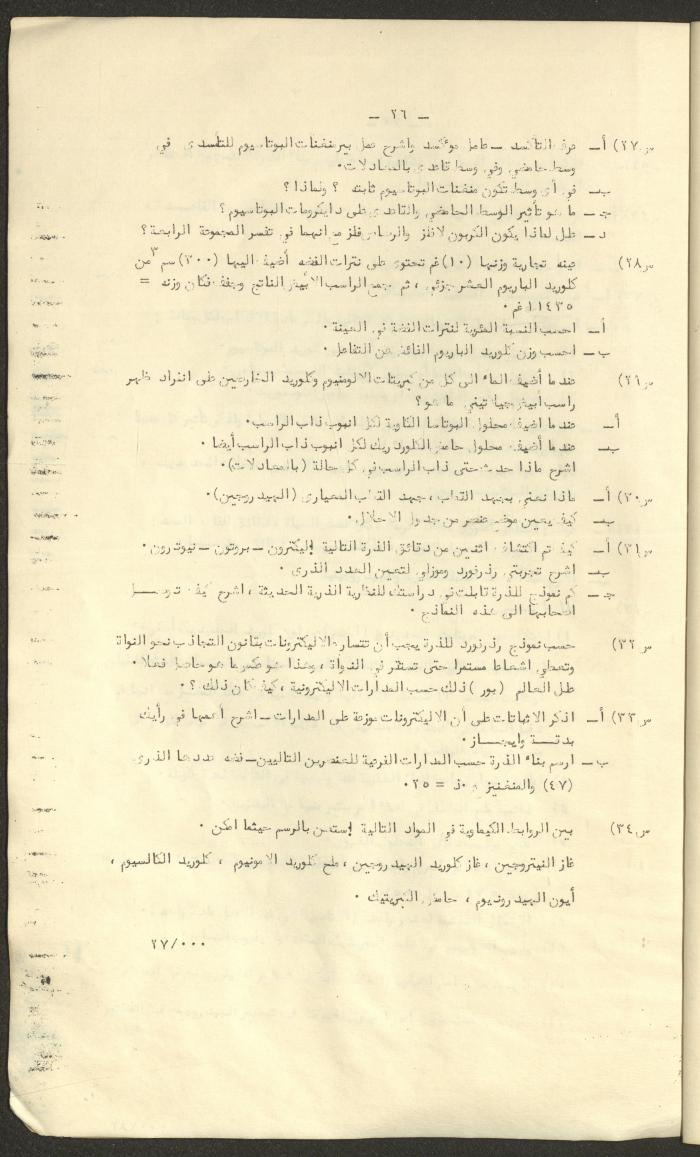 - ٢٦ -
س٢٧) أ- عرف التأكسد - عامل مؤكسد واشرح عمل بيرمنغنات البوتاسيوم للتأكسدى في
وسط حامضي وفي وسط قاعدى بالمعادلات.
ب- في أى وسط تكون منغنات البوتاسيوم ثابته ؟ ولماذا ؟
جـ- ما هو تأثير الوسط الحامضي والقاعدى على دايكرومات البوتاسيوم؟
د- علل لماذا يكون الكربون لافلز والرصاص فلز مع انهما في نفس المجموعة الرابعة؟
س٢٨) عينه تجارية وزنها (١٠) غم تحتوى على نترات الفضه أضيف اليها (٢٠٠) سم٣ من
كلوريد الباريوم العشر جزئي ، ثم جمع الراسب الأبيض الناتج وجفف فكان وزنه =
١١٤٣٥ غم .
أ- احسب النسبة المئوية لنترات الفضة في العينة .
ب- احسب وزن كلوريد الباريوم الفائض عن التفاعل .
س٢٩) عندما أضيف الماء الى كل من كبريتات الالومنيوم وكلوريد الخارصين على انفراد ظهر
راسب ابيض جيلاتيني ما هو؟
أ- عندما اضيف محلول البوتاسا الكاوية لكل انبوب ذاب الراسب.
ب- عندما أضيف محلول حامض الكلوردريك لكل انبوب ذاب الراسب أيضا .
اشرح ماذا حدث حتى ذاب الراسب في كل حالة (بالمعادلات).
س٣٠) أ- ماذا نعني بجهد القطب ، جهد القطب المعيارى (الهيدروجين).
ب- كيف يعين موضع عنصر من جدول الاحلال.
س٣١) أ- كيف تم اكتشاف اثنين من دقائق الذرة التالية إليكترون - بروتون - نيوترون.
ب- اشرح تجربتي رذرفورد وموزلي لتعيين العدد الذرى .
جـ- كم نموذج للذرة قابلت في دراستك للنظرية الذرية الحديثة ، اشرح كيف توصــل
اصحابها الى هذه النماذج .
س٣٢) حسب نموذج رذرفورد للذرة يجب أن تتسارع الاليكترونات بقانون التجاذب نحو النواة
وتعطي اشعاعا مستمرا حتى تستقر في النواة ، وهذا هو عكس ما هو حاصل فعلا .
علل العالم (بور) ذلك حسب المدارات الاليكترونية ، كيف كان ذلك ؟ .
س٣٣) أ- اذكر الاثباتات على أن الاليكترونات موزعة على المدارات - اشرح أهمها في رأيك
بدقــة وايجــاز .
ب- ارسم بناء الذرة حسب المدارات الفرعية للعنصرين التاليين - فضه عددها الذرى
(٤٧) والمنغنيز ع.ذ = ٢٥.
س٣٤) بين الروابط الكيماوية في المواد التالية إستعن بالرسم حيثما امكن .
غاز النيتروجين ، غاز كلوريد الهيدروجين ، ملح كلوريد الامونيوم ، كلوريد الكالسيوم ،
أيون الهيدرونيوم ، حامض الكبريتيك .
٢٧/٠٠٠